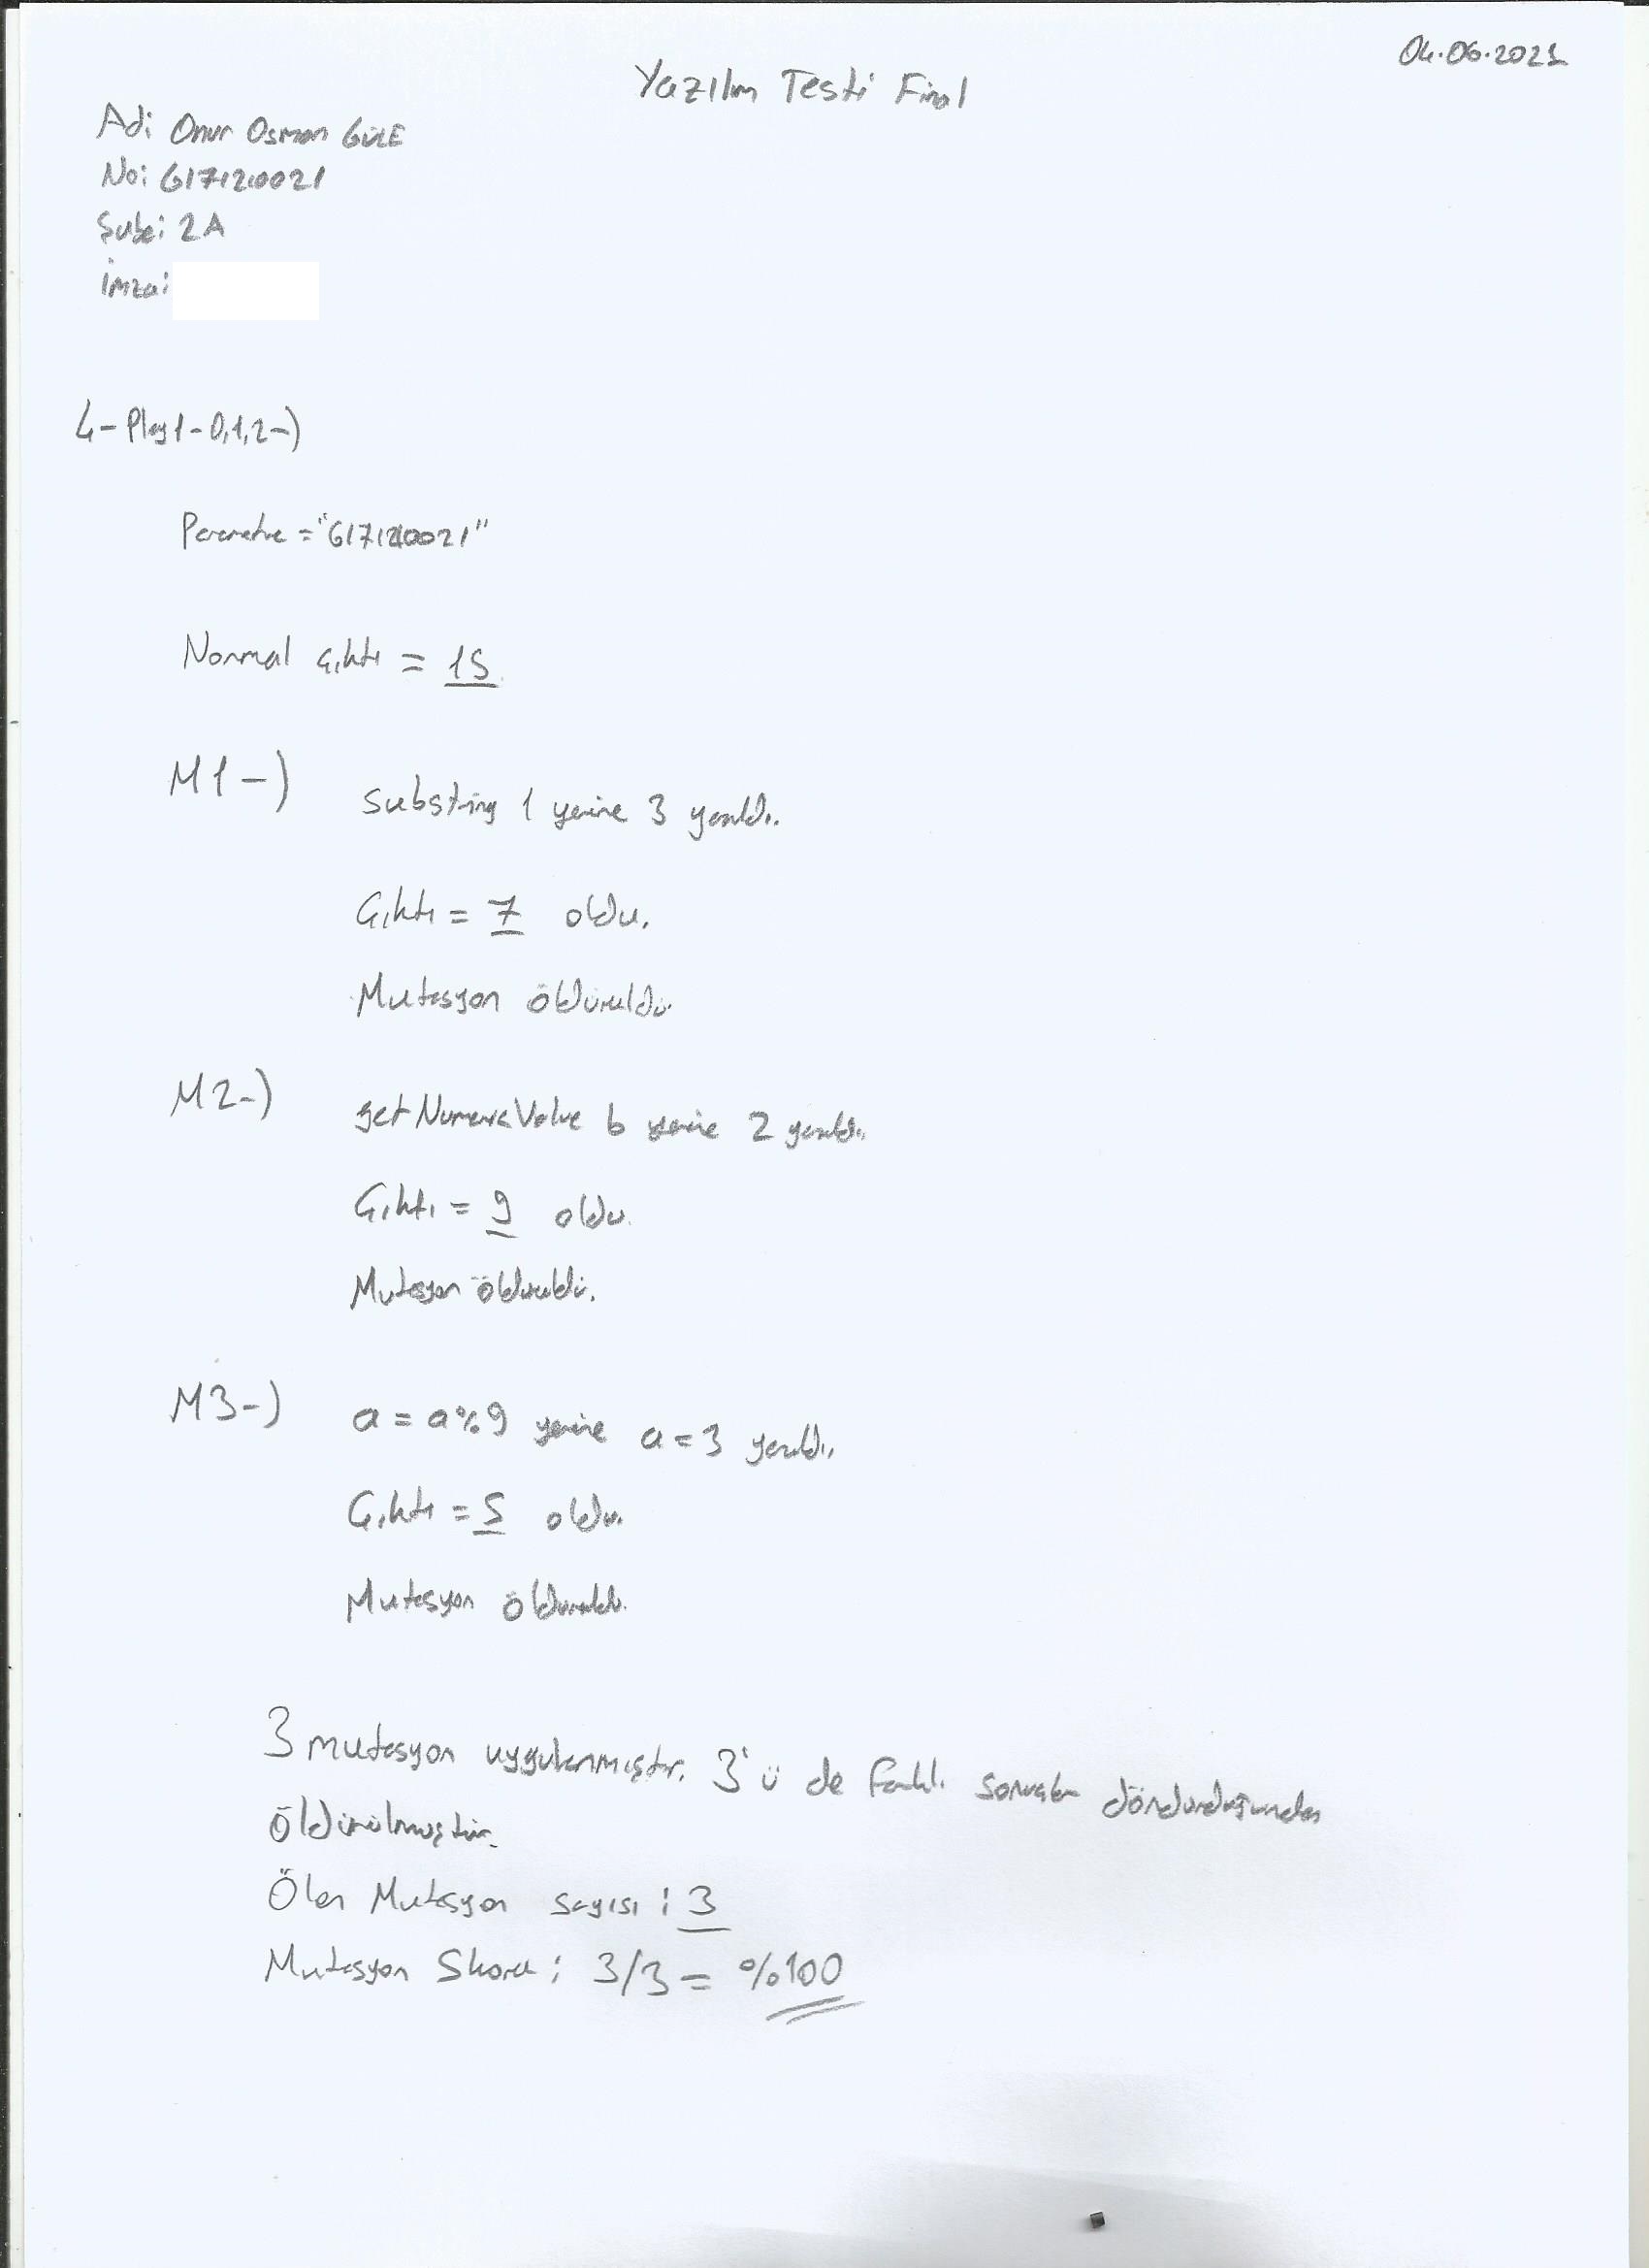 04.06.2021
Yazılım Testi Final
Adı: Onur Osman GÜLE
No: G171210021
Şube: 2A
İmza:
4-Play1-0,1,2-)
Parametre = "G171210021"
Normal Çıktı = 15
M1-) substring 1 yerine 3 yazıldı.
Çıktı = 7 oldu.
Mutasyon öldürüldü.
M2-) getNumericValue b yerine 2 yazıldı.
Çıktı = 9 oldu.
Mutasyon öldürüldü.
M3-) a = a%9 yerine a = 3 yazıldı.
Çıktı = 5 oldu.
Mutasyon öldürüldü.
3 mutasyon uygulanmıştır. 3'ü de farklı sonuçlar döndürdüğünden
öldürülmüştür.
Ölen Mutasyon sayısı : 3
Mutasyon Skoru : 3/3 = %100